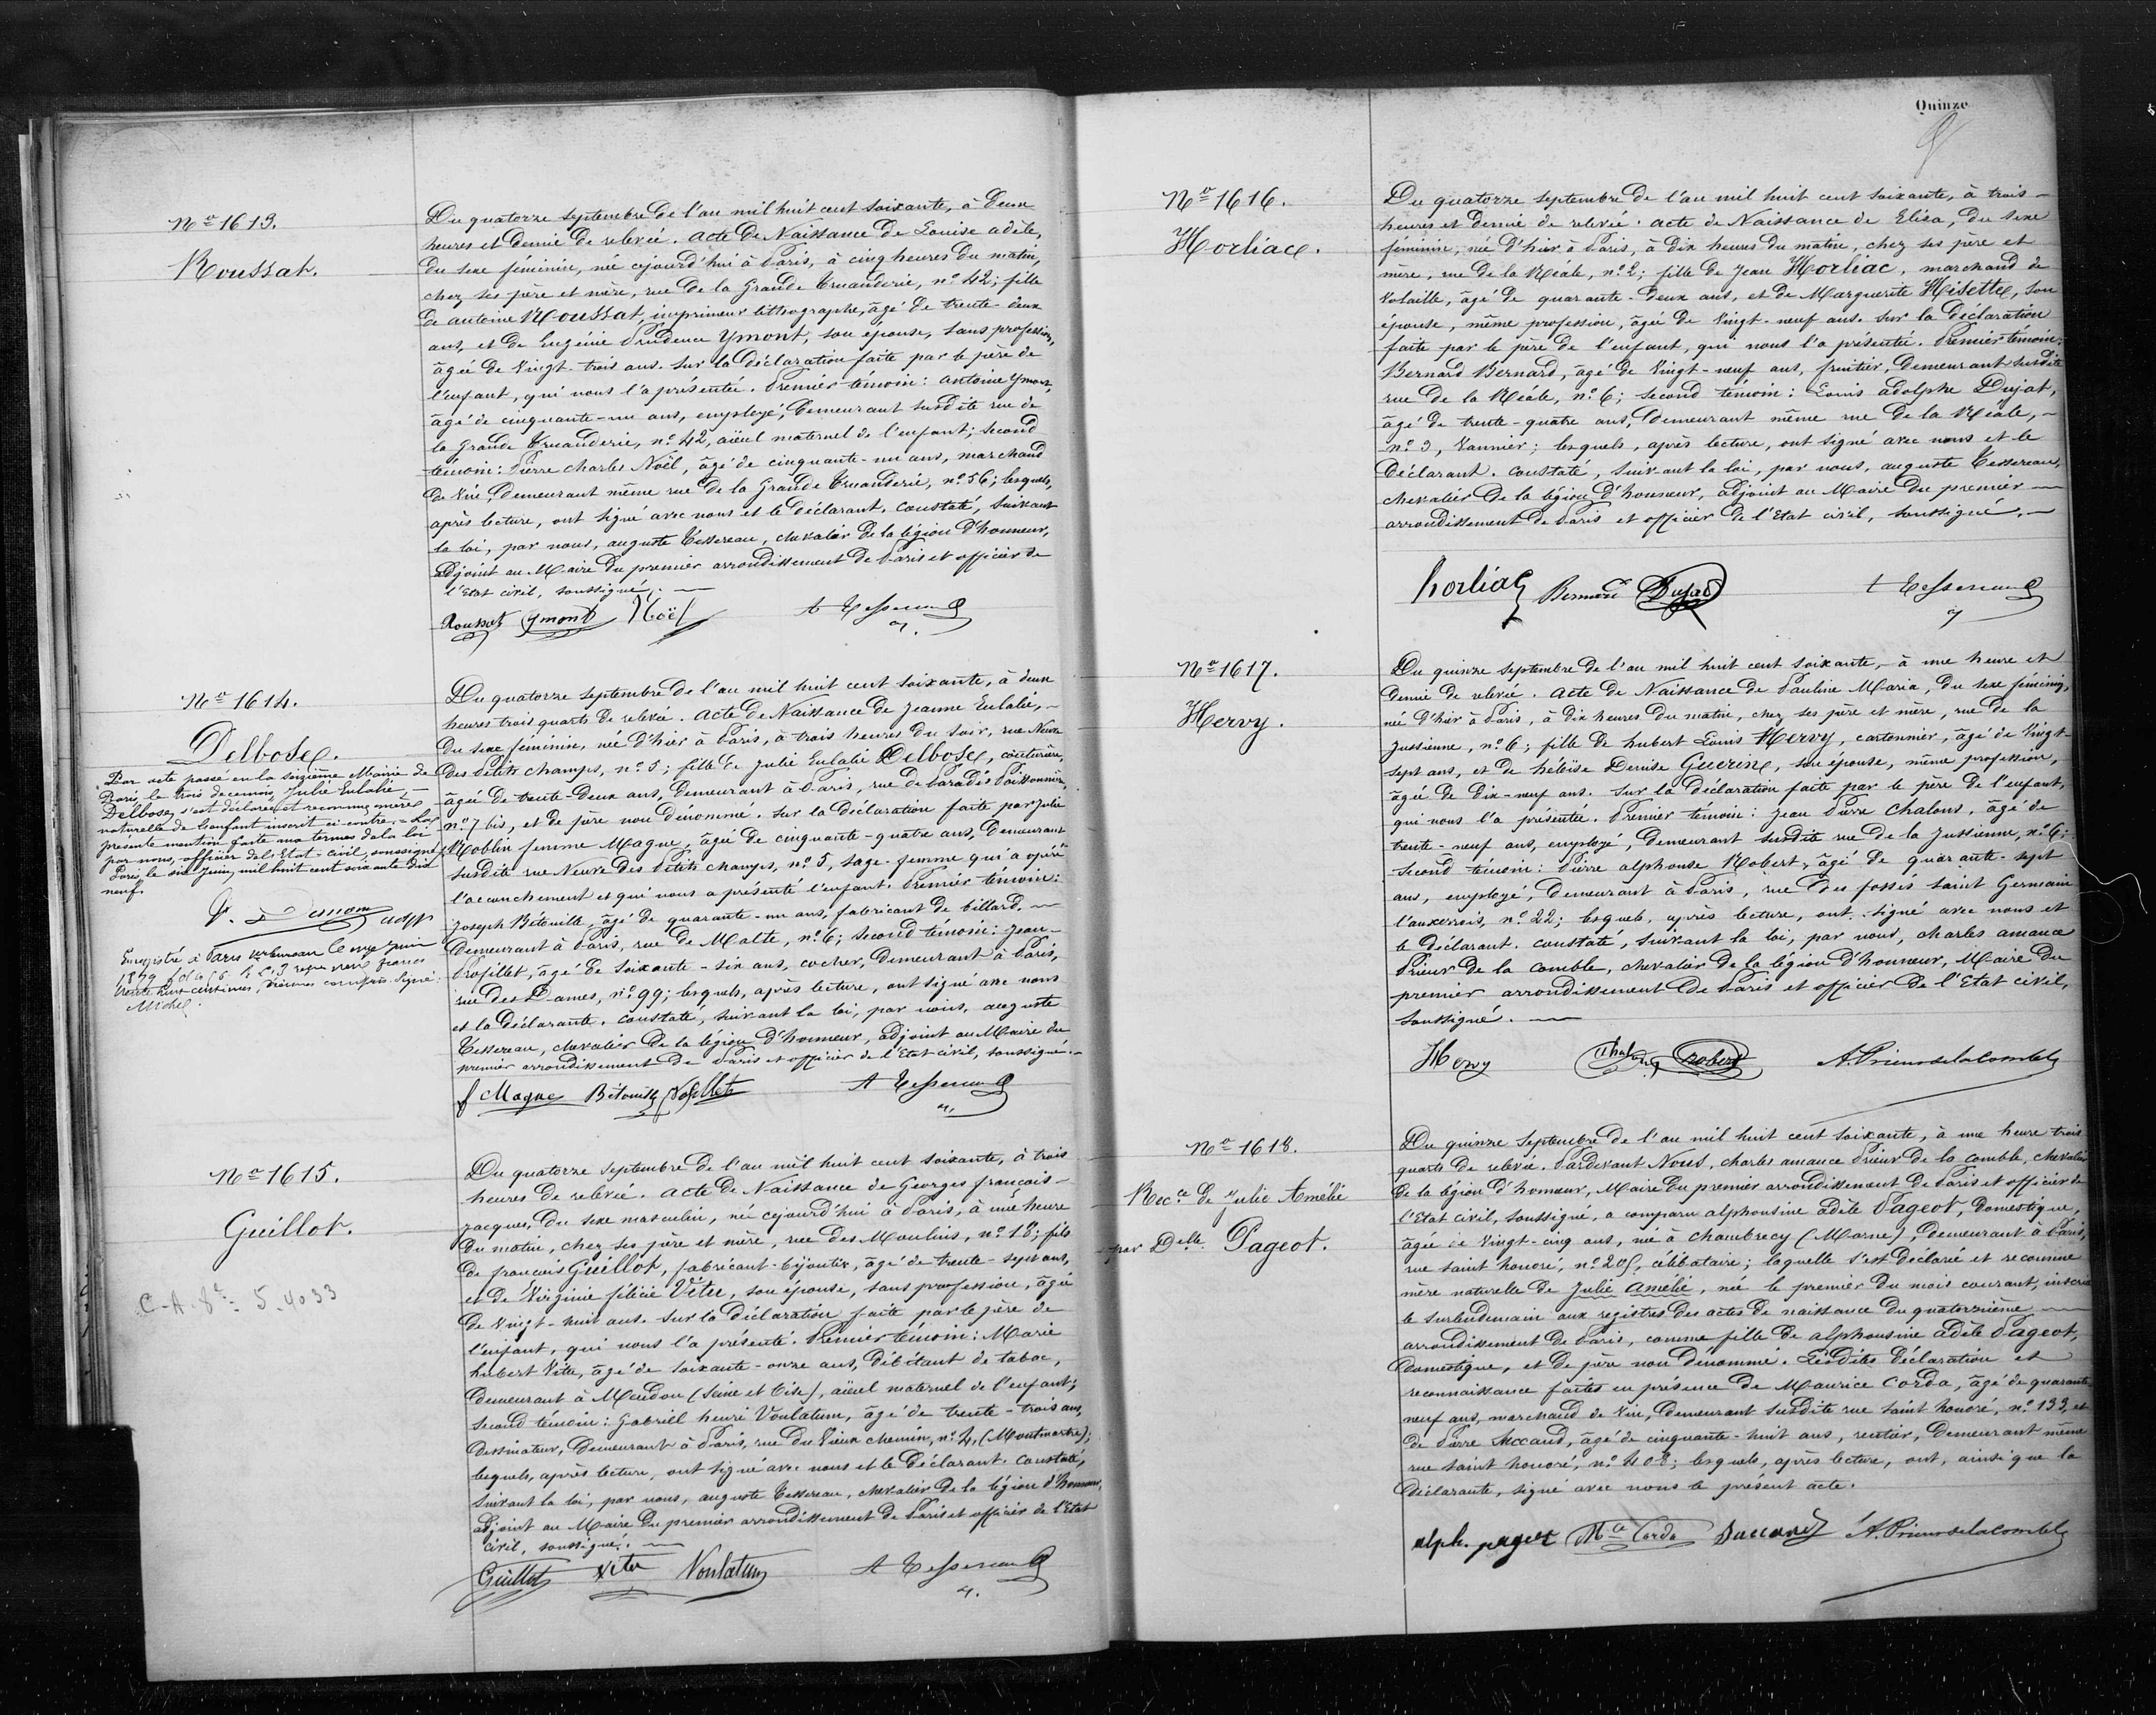 Nº 1613.
Roussat.
Du quatorze septembre de l'an mil huit cent soixante, à deux
heures et demie de relevée. acte de Naissance de Louise adèle,
du sexe féminin, née cejourd'hui à Paris, à cinq heures du matin,
chez ses père et mère, rue de la Grande Truanderie, nº 42; fille
de antoine Roussat, imprimeur lithographe, âgé de trente-deux
ans, et de Eugénie Prudence Ymont, son épouse, sans profession,
âgée de vingt-trois ans. sur la déclaration faite par le père de
l'enfant, qui nous l'a présenté. Premier témoin: antoine Ymont,
âgé de cinquante-un ans, employé, demeurant susdite rue de
la Grande Truanderie, nº 42, aïeul maternel de l'enfant; second
témoin: Pierre charles Noël, âgé de cinquante-un ans, marchand
de vin, demeurant même rue de la Grande Truanderie, nº 56; lesquels,
après lecture, ont signé avec nous et le déclarant. constaté, suivant
la loi, par nous, auguste Tessereau, chevalier de la légion d'honneur,
adjoint au Maire du premier arrondissement de Paris et officier de
l'Etat civil, soussigné.
Roussat Ymont Noël A Tessereau
Nº 1614.
Delbose.
Par acte passé en la seizième Mairie de
Paris, le trois de ce mois, Julie Eulalie
Delbose, s'est déclarée et reconnue mère
naturelle de l'enfant inscrit ci-contre. - La
présente mention faite aux termes de la loi
par nous, officier de l'Etat-civil, soussigné
Paris, le six Juin, mil huit cent soixante dix
neuf.
adjt
Enregistré à Paris bureau le onze Juin
1879 reçu trois francs
trente huit centimes, décimes compris. Signé:
Michel.
Du quatorze septembre de l'an mil huit cent soixante, à deux
heures trois quarts de relevée. acte de Naissance de Jeanne Eulalie,
du sexe féminin, née d'hier à Paris, à trois heures du soir, rue Neuve
des Petits champs, nº 5; fille de Julie Eulalie Delbose, couturière,
âgée de trente-deux ans, demeurant à Paris, rue de Paradis Poissonnière,
nº 7 bis, et de père non dénommé. sur la déclaration faite par Julie
Roblin femme Magne, âgée de cinquante-quatre ans, demeurant
susdite rue Neuve des Petits champs, nº 5, sage-femme qui a opéré
l'accouchement et qui nous a présenté l'enfant. Premier témoin:
Joseph Bétouille, âgé de quarante-un ans, fabricant de billard,
demeurant à Paris, rue de Malte, nº 6; second témoin: Jean
Profillet, âgé de soixante-six ans, cocher, demeurant à Paris,
rue des Dames, nº 99; lesquels, après lecture, ont signé avec nous
et la déclarante. constaté, suivant la loi, par nous, auguste
Tessereau, chevalier de la légion d'honneur, adjoint au Maire du
premier arrondissement de Paris et officier de l'Etat civil, soussigné.
f Magne Bétouille Profillet A Tessereau
Nº 1615.
Guillot.
C-A-8te- 5.4033
Du quatorze septembre de l'an mil huit cent soixante, à trois
heures de relevée. acte de Naissance de Georges françois
Jacques, du sexe masculin, né cejourd'hui à Paris, à une heure
du matin, chez ses père et mère, rue des Moulins, nº 18; fils
de françois Guillot, fabricant-bijoutier, âgé de trente-sept ans,
et de Virginie félicie Vitu, son épouse, sans profession, âgée
de vingt-huit ans. sur la déclaration faite par le père de
l'enfant, qui nous l'a présenté. Premier témoin: Marie
hubert Vitu, âgé de soixante-onze ans, débitant de tabac,
demeurant à Meudon (Seine et Oise), aïeul maternel de l'enfant;
second témoin: Gabriel henri Voulatum, âgé de trente-trois ans,
dessinateur, demeurant à Paris, rue du Vieux chemin, nº 4, (Montmartre);
lesquels, après lecture, ont signé avec nous et le déclarant. constaté,
suivant la loi, par nous, auguste Tessereau, chevalier de la légion d'honneur,
adjoint au Maire du premier arrondissement de Paris et officier de l'Etat
civil, soussigné.
Guillot Vitu Voulatum A Tessereau
Quinze
Nº 1616.
Horliac.
Du quatorze septembre de l'an mil huit cent soixante, à trois
heures et demie de relevée. acte de Naissance de Elisa, du sexe
féminin, née d'hier à Paris, à dix heures du matin, chez ses père et
mère, rue de la Réale, nº 2; fille de Jean Horliac, marchand de
volaille, âgé de quarante-deux ans, et de Marguerite Misette, son
épouse, même profession, âgée de vingt-neuf ans. sur la déclaration
faite par le père de l'enfant, qui nous l'a présenté. Premier témoin:
Bernard Bernard, âgé de vingt-neuf ans, fruitier, demeurant susdite
rue de la Réale, nº 6; second témoin: Louis adolphe Dujat,
âgé de trente-quatre ans, demeurant même rue de la Réale,
nº 3, vannier; lesquels, après lecture, ont signé avec nous et le
déclarant. constaté, suivant la loi, par nous, auguste Tessereau,
chevalier de la légion d'honneur, adjoint au Maire du premier
arrondissement de Paris et officier de l'Etat civil, soussigné.
horliac Bernard Dujat A Tessereau
Nº 1617.
Hervy.
Du quinze septembre de l'an mil huit cent soixante, à une heure et
demie de relevée. acte de Naissance de Pauline Maria, du sexe féminin,
née d'hier à Paris, à dix heures du matin, chez ses père et mère, rue de la
Jussienne, nº 6; fille de hubert Louis Hervy, cartonnier, âgé de vingt
sept ans, et de héloïse Denise Guerin, son épouse, même profession,
âgée de dix-neuf ans. sur la déclaration faite par le père de l'enfant,
qui nous l'a présenté. Premier témoin: Jean Pierre Chalons, âgé de
trente-neuf ans, employé, demeurant susdite rue de la Jussienne, nº 6;
second témoin: Pierre alphonse Robert, âgé de quarante-sept
ans, employé, demeurant à Paris, rue des fossés saint Germain
l'auxerrois, nº 22; lesquels, après lecture, ont signé avec nous et
le déclarant. constaté, suivant la loi, par nous, charles amance
Prieur de la comble, chevalier de la légion d'honneur, Maire du
premier arrondissement de Paris et officier de l'Etat civil,
soussigné.
Hervy Chalons Robert A. Prieur de la Comble
Nº 1618.
Recce de Julie Amélie
par Delle Pageot.
Du quinze septembre de l'an mil huit cent soixante, à une heure trois
quarts de relevée. Pardevant Nous, charles amance Prieur de la comble, chevalier
de la légion d'honneur, Maire du premier arrondissement de Paris et officier de
l'Etat civil, soussigné, a comparu alphonsine adèle Pageot, domestique,
âgée de vingt-cinq ans, née à Chambrecy (Marne), demeurant à Paris,
rue saint honoré, nº 205, célibataire; laquelle s'est déclarée et reconnue
mère naturelle de Julie Amélie, née le premier du mois courant, inscrite
le surlendemain aux registres des actes de naissance du quatorzième
arrondissement de Paris, comme fille de alphonsine adèle Pageot,
domestique, et de père non dénommé. Lesdites déclaration et
reconnaissance faites en présence de Maurice Corda, âgé de quarante
neuf ans, marchand de vin, demeurant susdite rue saint honoré, nº 133, et
de Pierre Succaud, âgé de cinquante-huit ans, rentier, demeurant même
rue saint honoré, nº 408; lesquels, après lecture, ont, ainsi que la
déclarante, signé avec nous le présent acte.
alph. pageot Mce Corda A. Prieur de la Comble